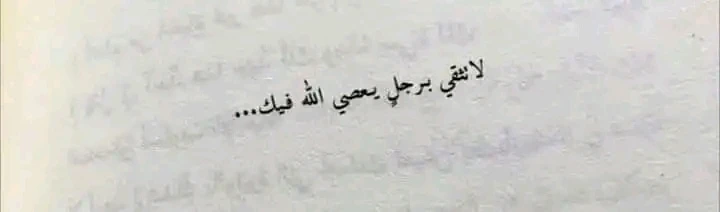 لا تثقي برجلٍ يعصي الله فيك...